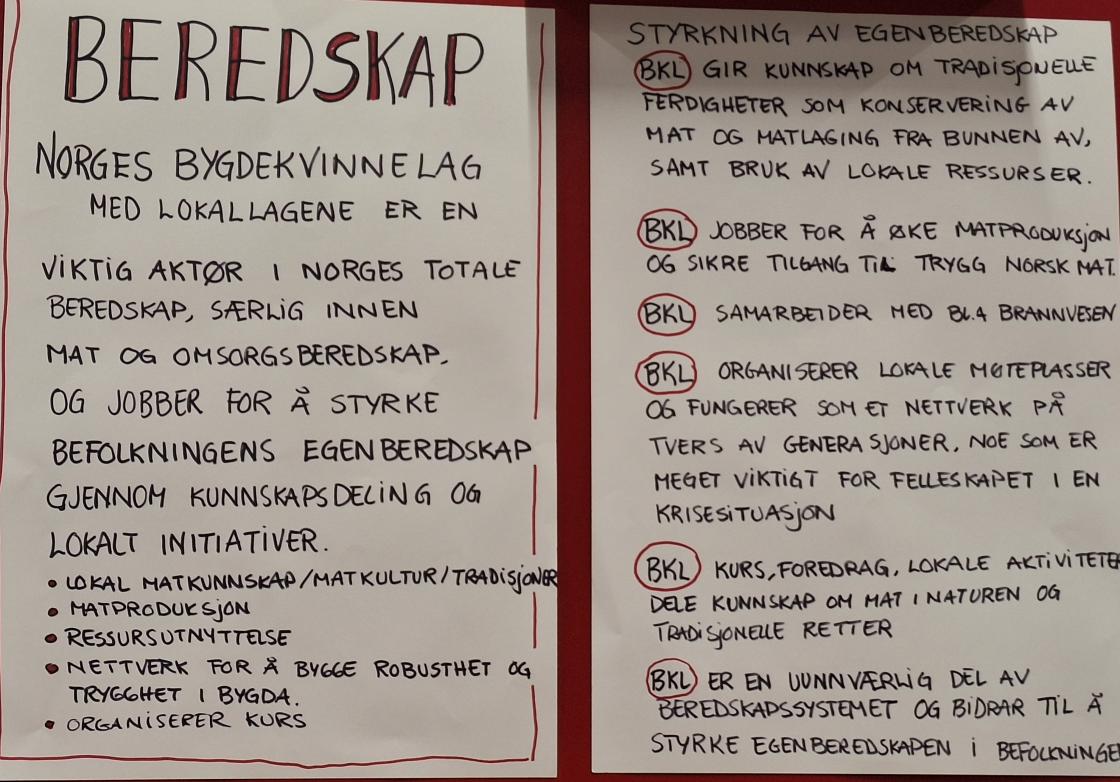 BEREDSKAP
NORGES BYGDEKVINNELAG
MED LOKALLAGENE ER EN
VIKTIG AKTØR I NORGES TOTALE
BEREDSKAP, SÆRLIG INNEN
MAT OG OMSORGSBEREDSKAP.
OG JOBBER FOR Å STYRKE
BEFOLKNINGENS EGENBEREDSKAP
GJENNOM KUNNSKAPSDELING OG
LOKALT INITIATIVER.
• LOKAL MATKUNNSKAP/MATKULTUR/TRADISJONER
• MATPRODUKSJON
• RESSURSUTNYTTELSE
• NETTVERK FOR Å BYGGE ROBUSTHET OG
TRYGGHET I BYGDA.
• ORGANISERER KURS
STYRKNING AV EGENBEREDSKAP
BKL GIR KUNNSKAP OM TRADISJONELLE
FERDIGHETER SOM KONSERVERING AV
MAT OG MATLAGING FRA BUNNEN AV,
SAMT BRUK AV LOKALE RESSURSER.
BKL JOBBER FOR Å ØKE MATPRODUKSJON
OG SIKRE TILGANG TIL TRYGG NORSK MAT.
BKL SAMARBEIDER MED BL.A BRANNVESEN
BKL ORGANISERER LOKALE MØTEPLASSER
OG FUNGERER SOM ET NETTVERK PÅ
TVERS AV GENERASJONER, NOE SOM ER
MEGET VIKTIGT FOR FELLESKAPET I EN
KRISESITUASJON
BKL KURS, FOREDRAG, LOKALE AKTIVITETE
DELE KUNNSKAP OM MAT I NATUREN OG
TRADISJONELLE RETTER
BKL ER EN UUNNVÆRLIG DEL AV
BEREDSKAPSSYSTEMET OG BIDRAR TIL Å
STYRKE EGENBEREDSKAPEN I BEFOLKNINGE